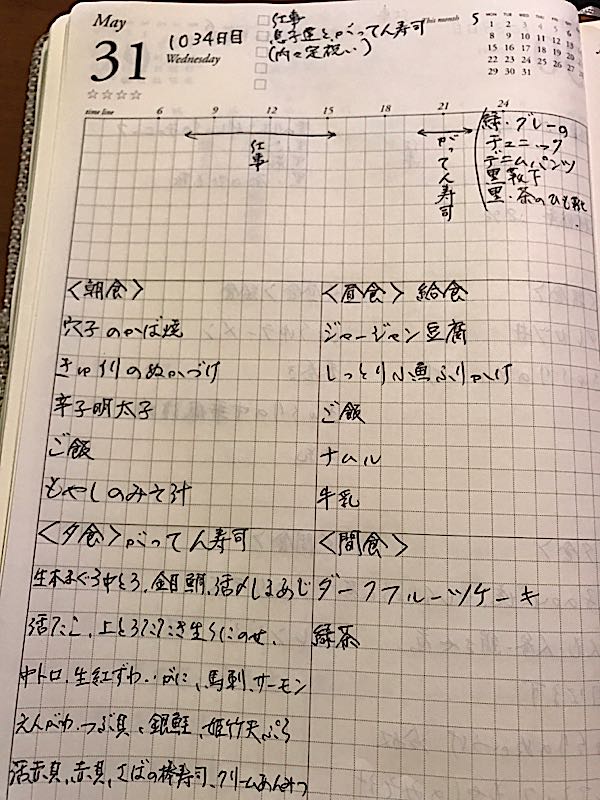 May
31
Wednesday
1034日目
仕事
息子達とがってん寿司
(内々定祝い)
This month 5
MON TUE WED THU FRI SAT SUN
1 2 3 4 5 6
8 9 10 11 12 13
15 16 17 18 19 20
22 23 24 25 26
29 30 31
☆☆☆☆
time line 6 9 12 15 18 21 24
仕事
がってん寿司
緑・グレーの
チュニック
デニムパンツ
黒靴下
黒・茶のひも靴
〈朝食〉
穴子のかば焼
きゅうりのぬかづけ
辛子明太子
ご飯
もやしのみそ汁
〈昼食〉 給食
ジャージャン豆腐
しっとり小魚ふりかけ
ご飯
ナムル
牛乳
〈夕食〉がってん寿司
生本まぐろ中とろ、金目鯛、活〆しまあじ
活たこ、上とろたたき生うにのせ、
中トロ、生紅ずわいがに、馬刺、サーモン
えんがわ、つぶ貝、銀鮭、姫竹天ぷら
活赤貝、赤貝、さばの棒寿司、クリームあんみつ
〈間食〉
ダークフルーツケーキ
緑茶